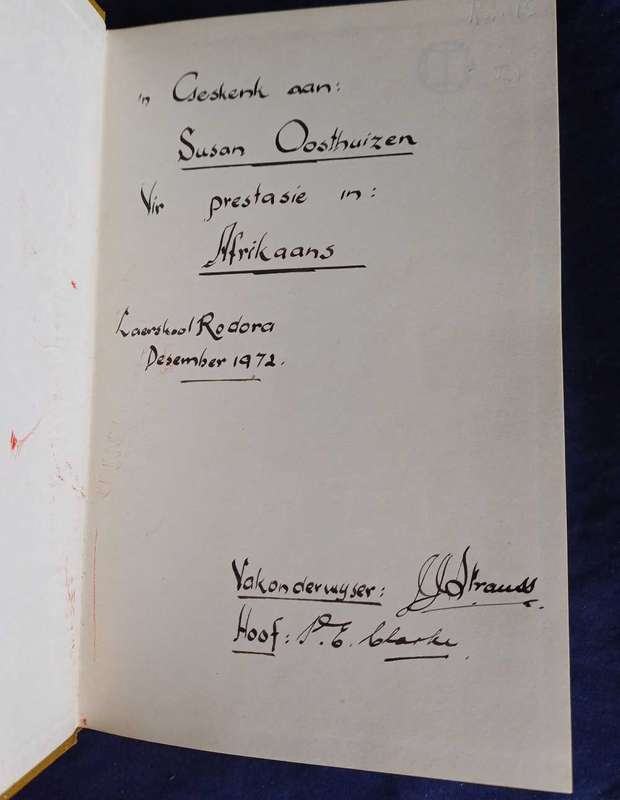 'n Geskenk aan:
Susan Oosthuizen
Vir prestasie in:
Afrikaans
Laerskool Rodora
Desember 1972.
Vakonderwyser: Strauss
Hoof: P. E. Clarke